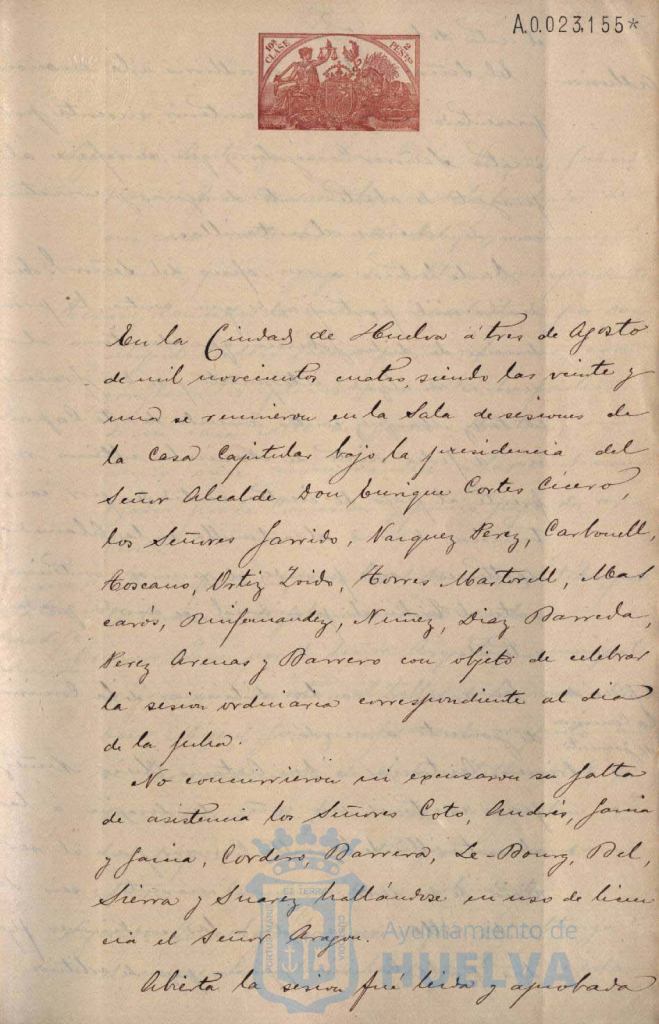 A.0.023,155*
10ª CLASE
2 PESETAS
En la Ciudad de Huelva á tres de Agosto
de mil novecientos cuatro, siendo las veinte y
una se reunieron en la Sala de sesiones de
la Casa Capitular bajo la presidencia del
Señor Alcalde Don Enrique Cortes Cicero,
los Señores Garrido, Vazquez Perez, Carbonell,
Toscano, Ortiz Zoido, Torres Martorell, Mas
carós, Nuñez, Diaz Barreda,
Perez Arenas y Barrero con objeto de celebrar
la sesion ordinaria correspondiente al dia
de la fecha.
No concurrieron ni excusaron su falta
de asistencia los Señores Coto, Andrés, Garcia
y Garcia, Cordero, Barrera, Le-Bourg, Bel,
Sierra y Suarez hallándose en uso de licen
cia el Señor Aragon.
Abierta la sesion fué leida y aprobada
Ayuntamiento de
HUELVA